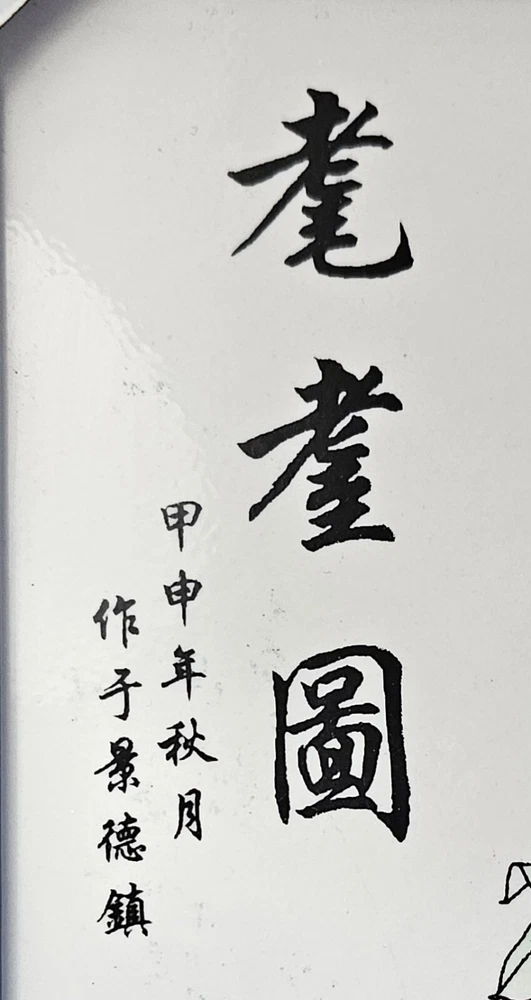 耄耋圖
甲申年秋月
作于景德鎮